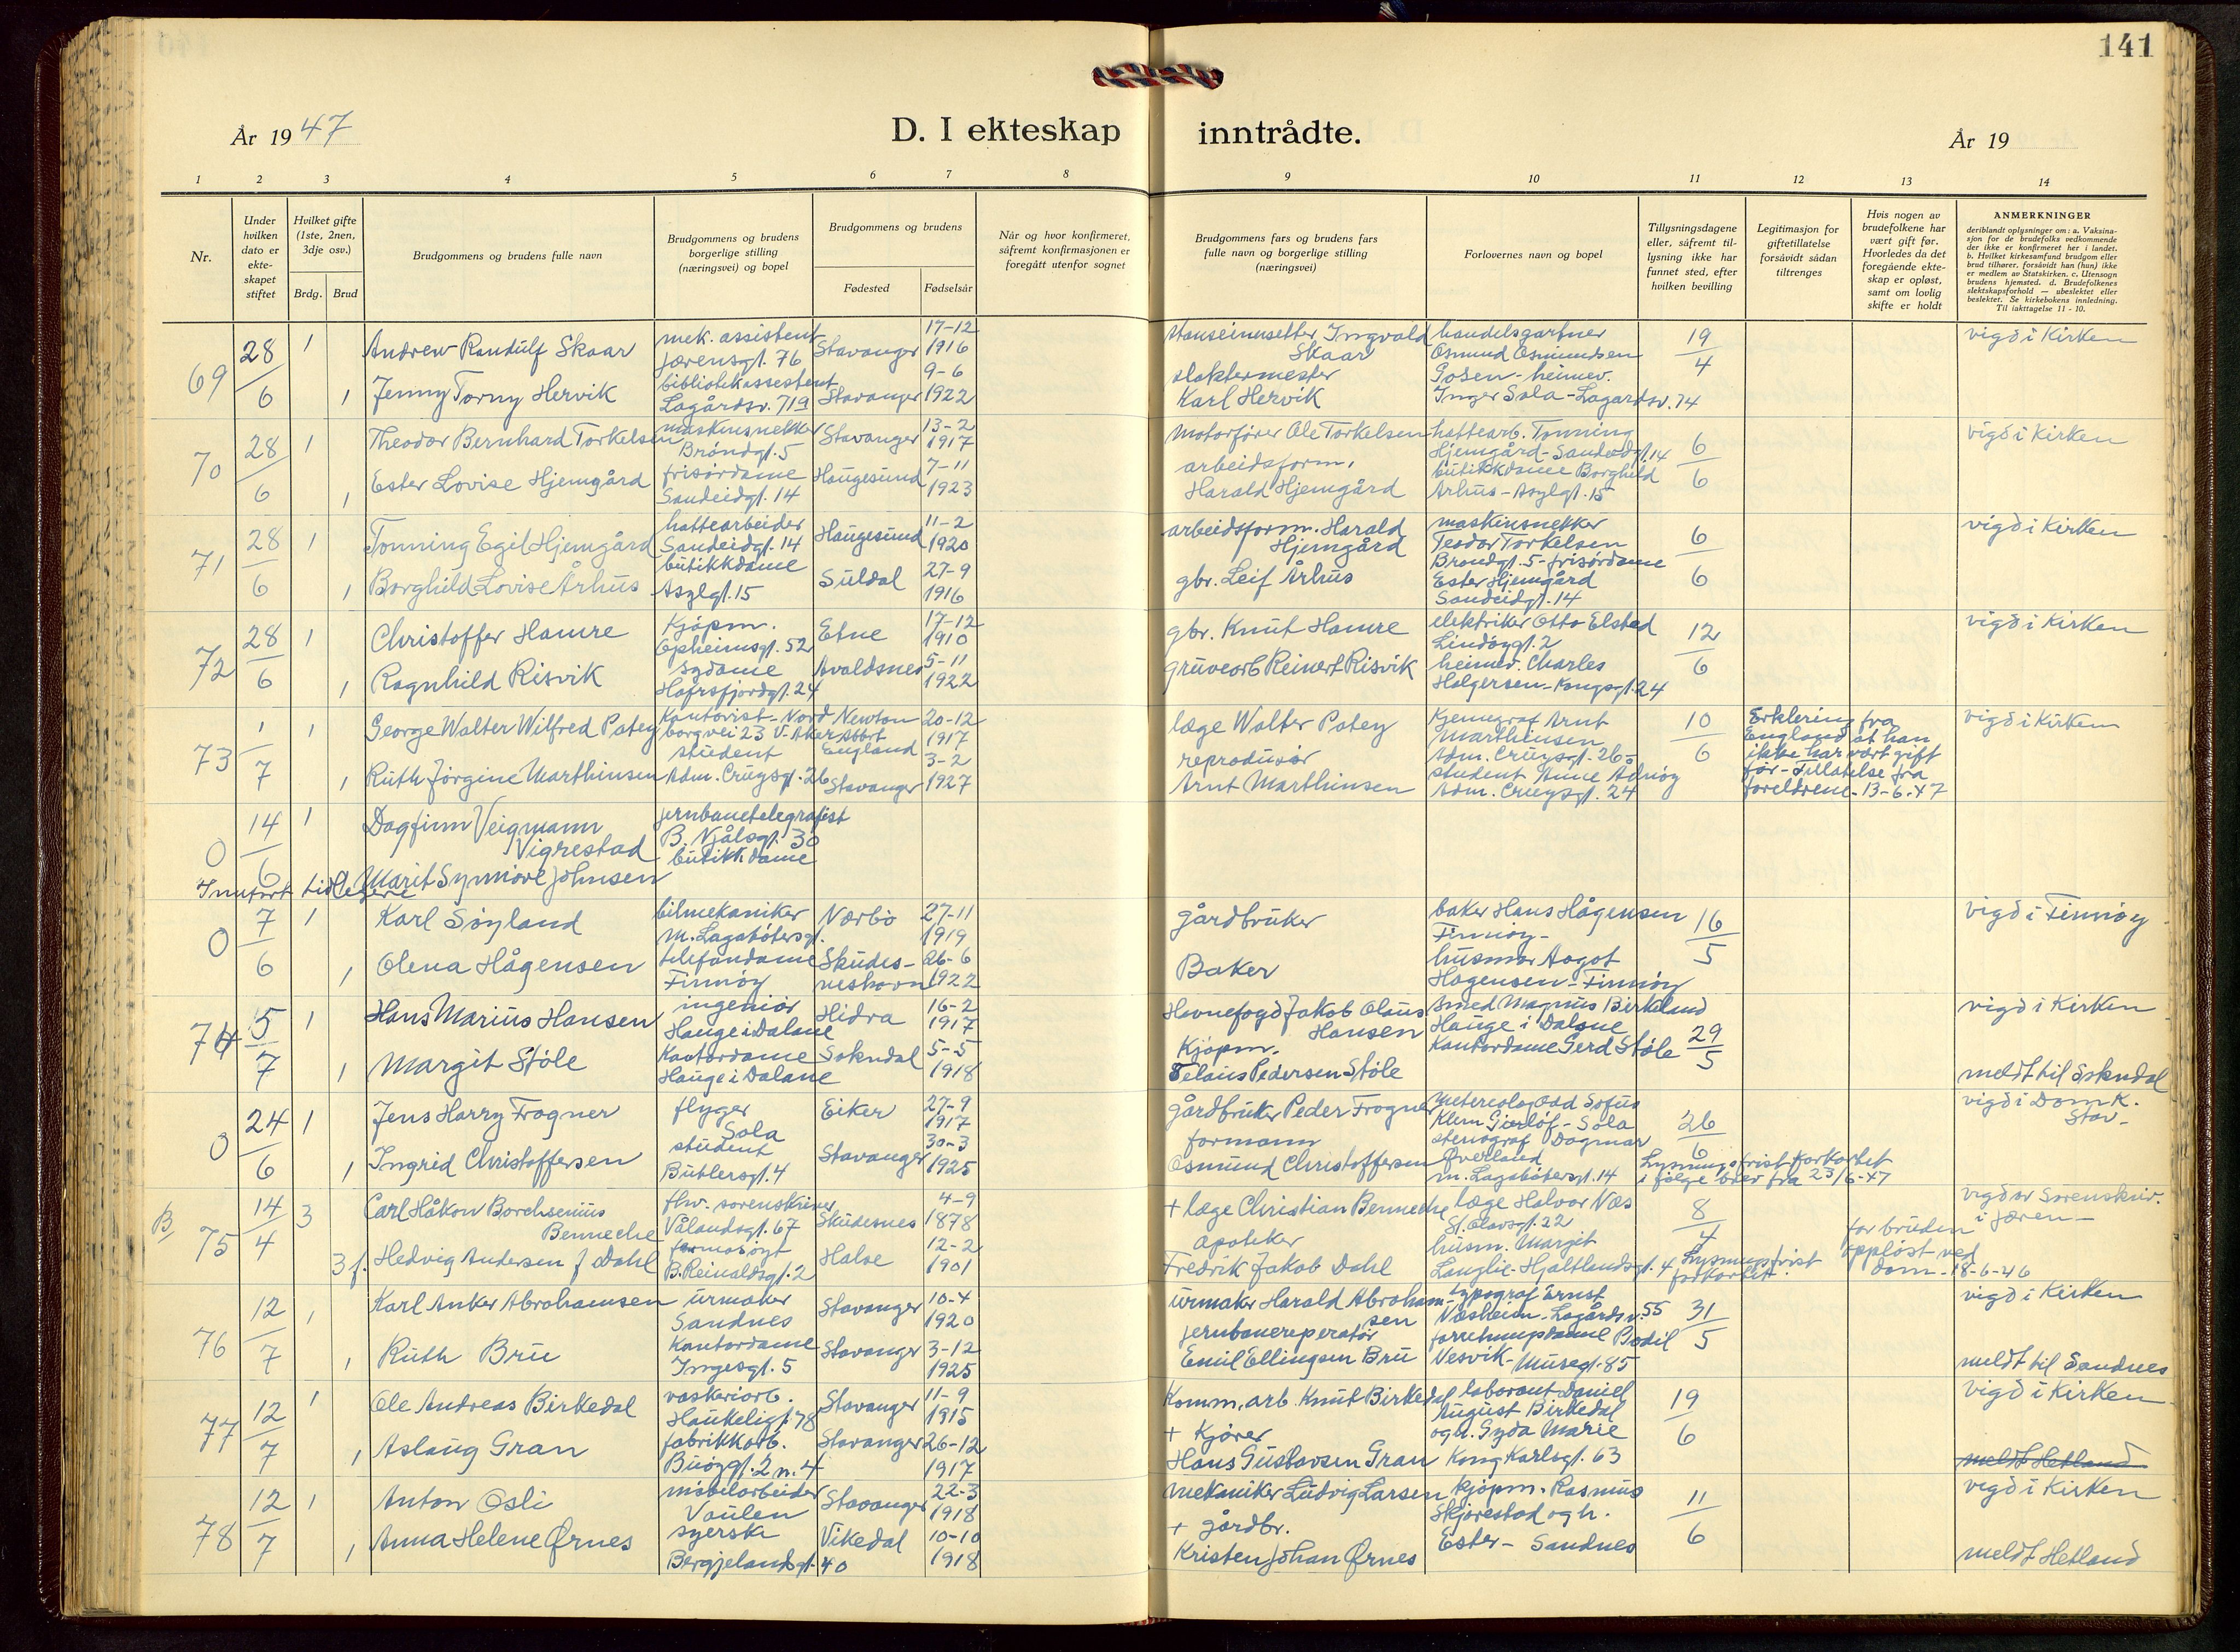 141
År 1947
D. I ekteskap inntrådte.
År 19
1 2 3 4 5 6 7 8 9 10 11 12 13 14
Nr.
Under hvilken dato er ekte-skapet stiftet
Hvilket gifte (1ste, 2nen, 3dje osv.)
Brdg. Brud
Brudgommens og brudens fulle navn
Brudgommens og brudens borgerlige stilling (næringsvei) og bopel
Brudgommens og brudens
Fødested
Fødselsår
Når og hvor konfirmeret, såfremt konfirmasjonen er foregått utenfor sognet
Brudgommens fars og brudens fars fulle navn og borgerlige stilling (næringsvei)
Forlovernes navn og bopel
Tillysningsdagene eller, såfremt til-lysning ikke har funnet sted, efter hvilken bevilling
Legitimasjon for giftetillatelse forsåvidt sådan tiltrenges
Hvis nogen av brudefolkene har vært gift før. Hvorledes da det foregående ekte-skap er opløst, samt om lovlig skifte er holdt
ANMERKNINGER
deriblandt oplysninger om: a. Vaksina-sjon for de brudefolks vedkommende der ikke er konfirmeret her i landet. b. Hvilket kirkesamfund brudgom eller brud tilhører, forsåvidt han (hun) ikke er medlem av Statskirken. c. Utensogn brudens hjemsted. d. Brudefolkenes slektskapsforhold — ubeslektet eller beslektet. Se kirkebokens innledning. Til iakttagelse 11 - 10.
69 28/6 1 Andrew Randulf Skaar mek. assistent Jærensgt. 76 Stavanger 17-12 1916 Ingvald Skaar handelsgartner Osmund Osmundsen Gosen - heimev. 19/4 vigd i Kirken
1 Jenny Torny Hervik bibliotekassestent Lagårdsv. 719 Stavanger 9-6 1922 slaktermester Karl Hervik Inger Sola - Lagardsv. 74
70 28/6 1 Theodor Bernhard Torkelsen maskinsnekker Brøndgt. 5 Stavanger 13-2 1917 Motorfører Ole Torkelsen hattearb. Tonning Hjemgård - Sandeidgt. 14 6/6 vigd i Kirken
1 Ester Lovise Hjemgård frisørdame Sandeidgt. 14 Haugesund 7-11 1923 arbeidsform. Harald Hjemgård butikkdame Borghild Århus - Asylgt. 15
71 28/6 1 Tonning Egil Hjemgård hattearbeider Sandeidgt. 14 Haugesund 11-2 1920 arbeidsform. Harald Hjemgård maskinsnekker Teodor Torkelsen Brøndgt. 5 - frisørdame 6/6 vigd i Kirken
1 Borghild Lovise Århus butikkdame Asylgt. 15 Suldal 27-9 1916 gbr. Leif Århus Ester Hjemgård Sandeidgt. 14
72 28/6 1 Christoffer Hamre Kjøpm. Opheimsgt. 52 Etne 17-12 1910 gbr. Knut Hamre elektriker Otto Elstad Lindøygt. 2 12/6 vigd i Kirken
1 Ragnhild Risvik sydame Hafrsfjordgt. 24 Avaldsnes 5-11 1922 gruvearb Reinert Risvik heimev. Charles Holgersen - Kongsgt. 24
73 1/7 1 George Walter Wilfred Patey Kontorist - Nordborgvei 23 V. Aker Newton Abbot England 20-12 1917 læge Walter Patey Kjemigraf Arnt Marthinsen Adm. Cruysgt. 26 - 10/6 Erklering fra England at han ikke har vært gift før - Tillatelse fra foreldrene - 13-6-47 vigd i Kirken
1 Ruth Jørgine Marthinsen student Adm. Cruysgt. 26 Stavanger 3-2 1927 reprodusør Arnt Marthinsen student Anne Adnøy Adm. Cruysgt. 24
0 14/6 1 Dagfinn Veigmann Vigrestad jernbanetelegrafist B. Njålsgt. 30
Marit Synnøve Johnsen butikkdame
Innført tidligere
0 7/6 1 Karl Søyland bilmekaniker M. Lagabøtersgt. Nærbø 27-11 1919 gårdbruker baker Hans Hågensen Finnøy - 16/5 vigd i Finnøy
1 Olena Hågensen telefondame Finnøy Skudesneshavn 26-6 1922 Baker husmor Aagot Hagensen - Finnøy
74 5/7 1 Hans Marius Hansen ingeniør Hauge i Dalane Hidra 16-2 1917 Havnefogd Jakob Olaus Hansen Magnus Birkeland Hauge i Dalane 29/5 vigd i Kirken
1 Margit Støle Kontordame Hauge i Dalane Sokndal 5-5 1918 Kjøpm. Pedersen Støle Kontordame Gerd Støle meldt til Sokndal
0 24/6 1 Jens Harry Frogner flyger Sola Eiker 27-9 1917 gårdbruker Peder Frogner Odd Sofus Klem Gierløf - Sola 26/6 vigd i Domk. Stav -
1 Ingrid Christoffersen student Bütlersgt. 4 Stavanger 30-3 1925 formann Osmund Christoffersen stenograf Dagmar Øverland M. Lagabøtersgt. 14 Lysningsfrist forkortet i følge brev fra 23/6-47
B 75 14/4 3 Carl Håkon Borchsenius Benneche fhv. sorenskriver Vålandsgt. 67 Skudesnes 4-9 1878 + læge Christian Benneche læge Halvor Næs St. Olavsgt. 22 8/4 vigd av Sorenskriv. i Jæren -
3 Hedvig Andersen f Dahl B. Reinaldsgt. 2 Halse 12-2 1901 apoteker Fredrik Jakob Dahl husm. Margit Langlie - Hjaltlandsgt. 4 Lysningsfrist forkortet. for bruden oppløst ved dom - 18-6-46
76 12/7 1 Karl Anker Abrahamsen urmaker Sandnes Stavanger 10-4 1920 urmaker Harald Abrahamsen typograf Ernst Væsheim - Lagårdsv. 55 31/5 vigd i Kirken
1 Ruth Bru Kontordame Ingesgt. 5 Stavanger 3-12 1925 jernbanereperatør Emil Ellingsen Bru Bodil Vesvik - Musegt. 85 meldt til Sandnes
77 12/7 1 Ole Andreas Birkedal vaskeriarb. Haukeligt. 78 Stavanger 11-9 1915 Komm. arb. Knut Birkedal laborant Daniel August Birkedal 19/6 vigd i Kirken
1 Aslaug Gran fabrikkarb. Buøygt. 2 n. 4 Stavanger 26-12 1917 + Kjører Hans Gustavsen Gran og h. Gyda Marie Kong Karlsgt. 63 meldt Hetland
78 12/7 1 Anton Osli møbelarbeider Vaulen Stavanger 22-3 1918 mekaniker Ludvig Larsen Kjøpm. Rasmus Skjørestad og h. 11/6 vigd i Kirken
1 Anna Helene Ørnes syerske Bergjelandsgt. 40 Vikedal 10-10 1918 + gårdbr. Kristen Johan Ørnes Ester - Sandnes meldt Hetland